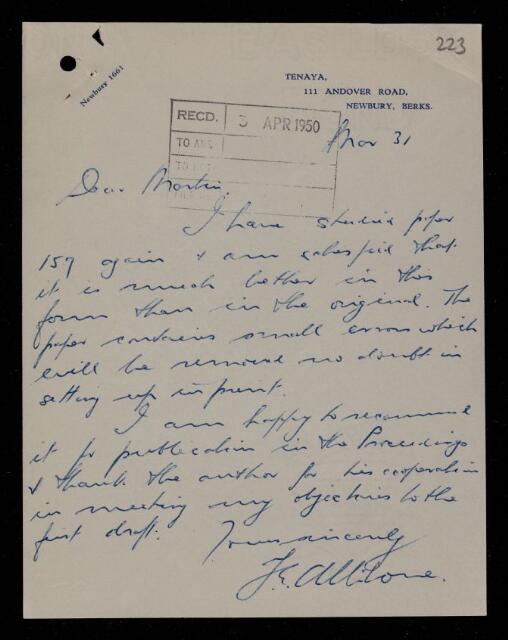 223
Newbury 1661
TENAYA,
111 ANDOVER ROAD,
NEWBURY, BERKS.
RECD. 3 APR 1950
TO ANS
Mar 31
Dear Martin,
I have studied paper
157 again & am satisfied that
it is much better in this
form than in the original. The
paper contains small errors which
will be removed no doubt in
setting up in print.
I am happy to recommend
it for publication in the Proceedings
& thank the author for his cooperation
in meeting my objections to the
first draft.
Yours sincerely